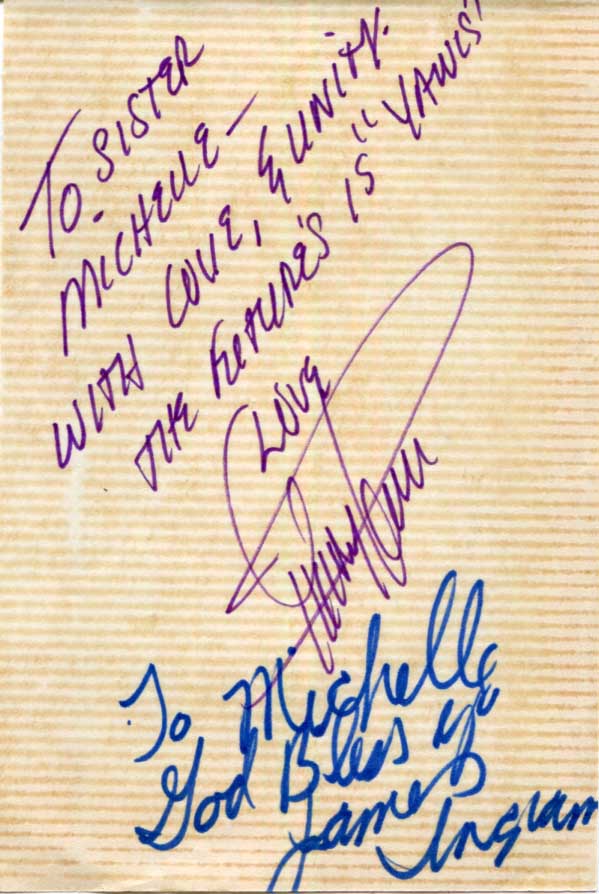 To SISTER
MICHELLE—
WITH LOVE, & UNITY.
THE FUTURE'S IS "YOURS"
LOVE
To Michelle
God Bless you
James
Ingram